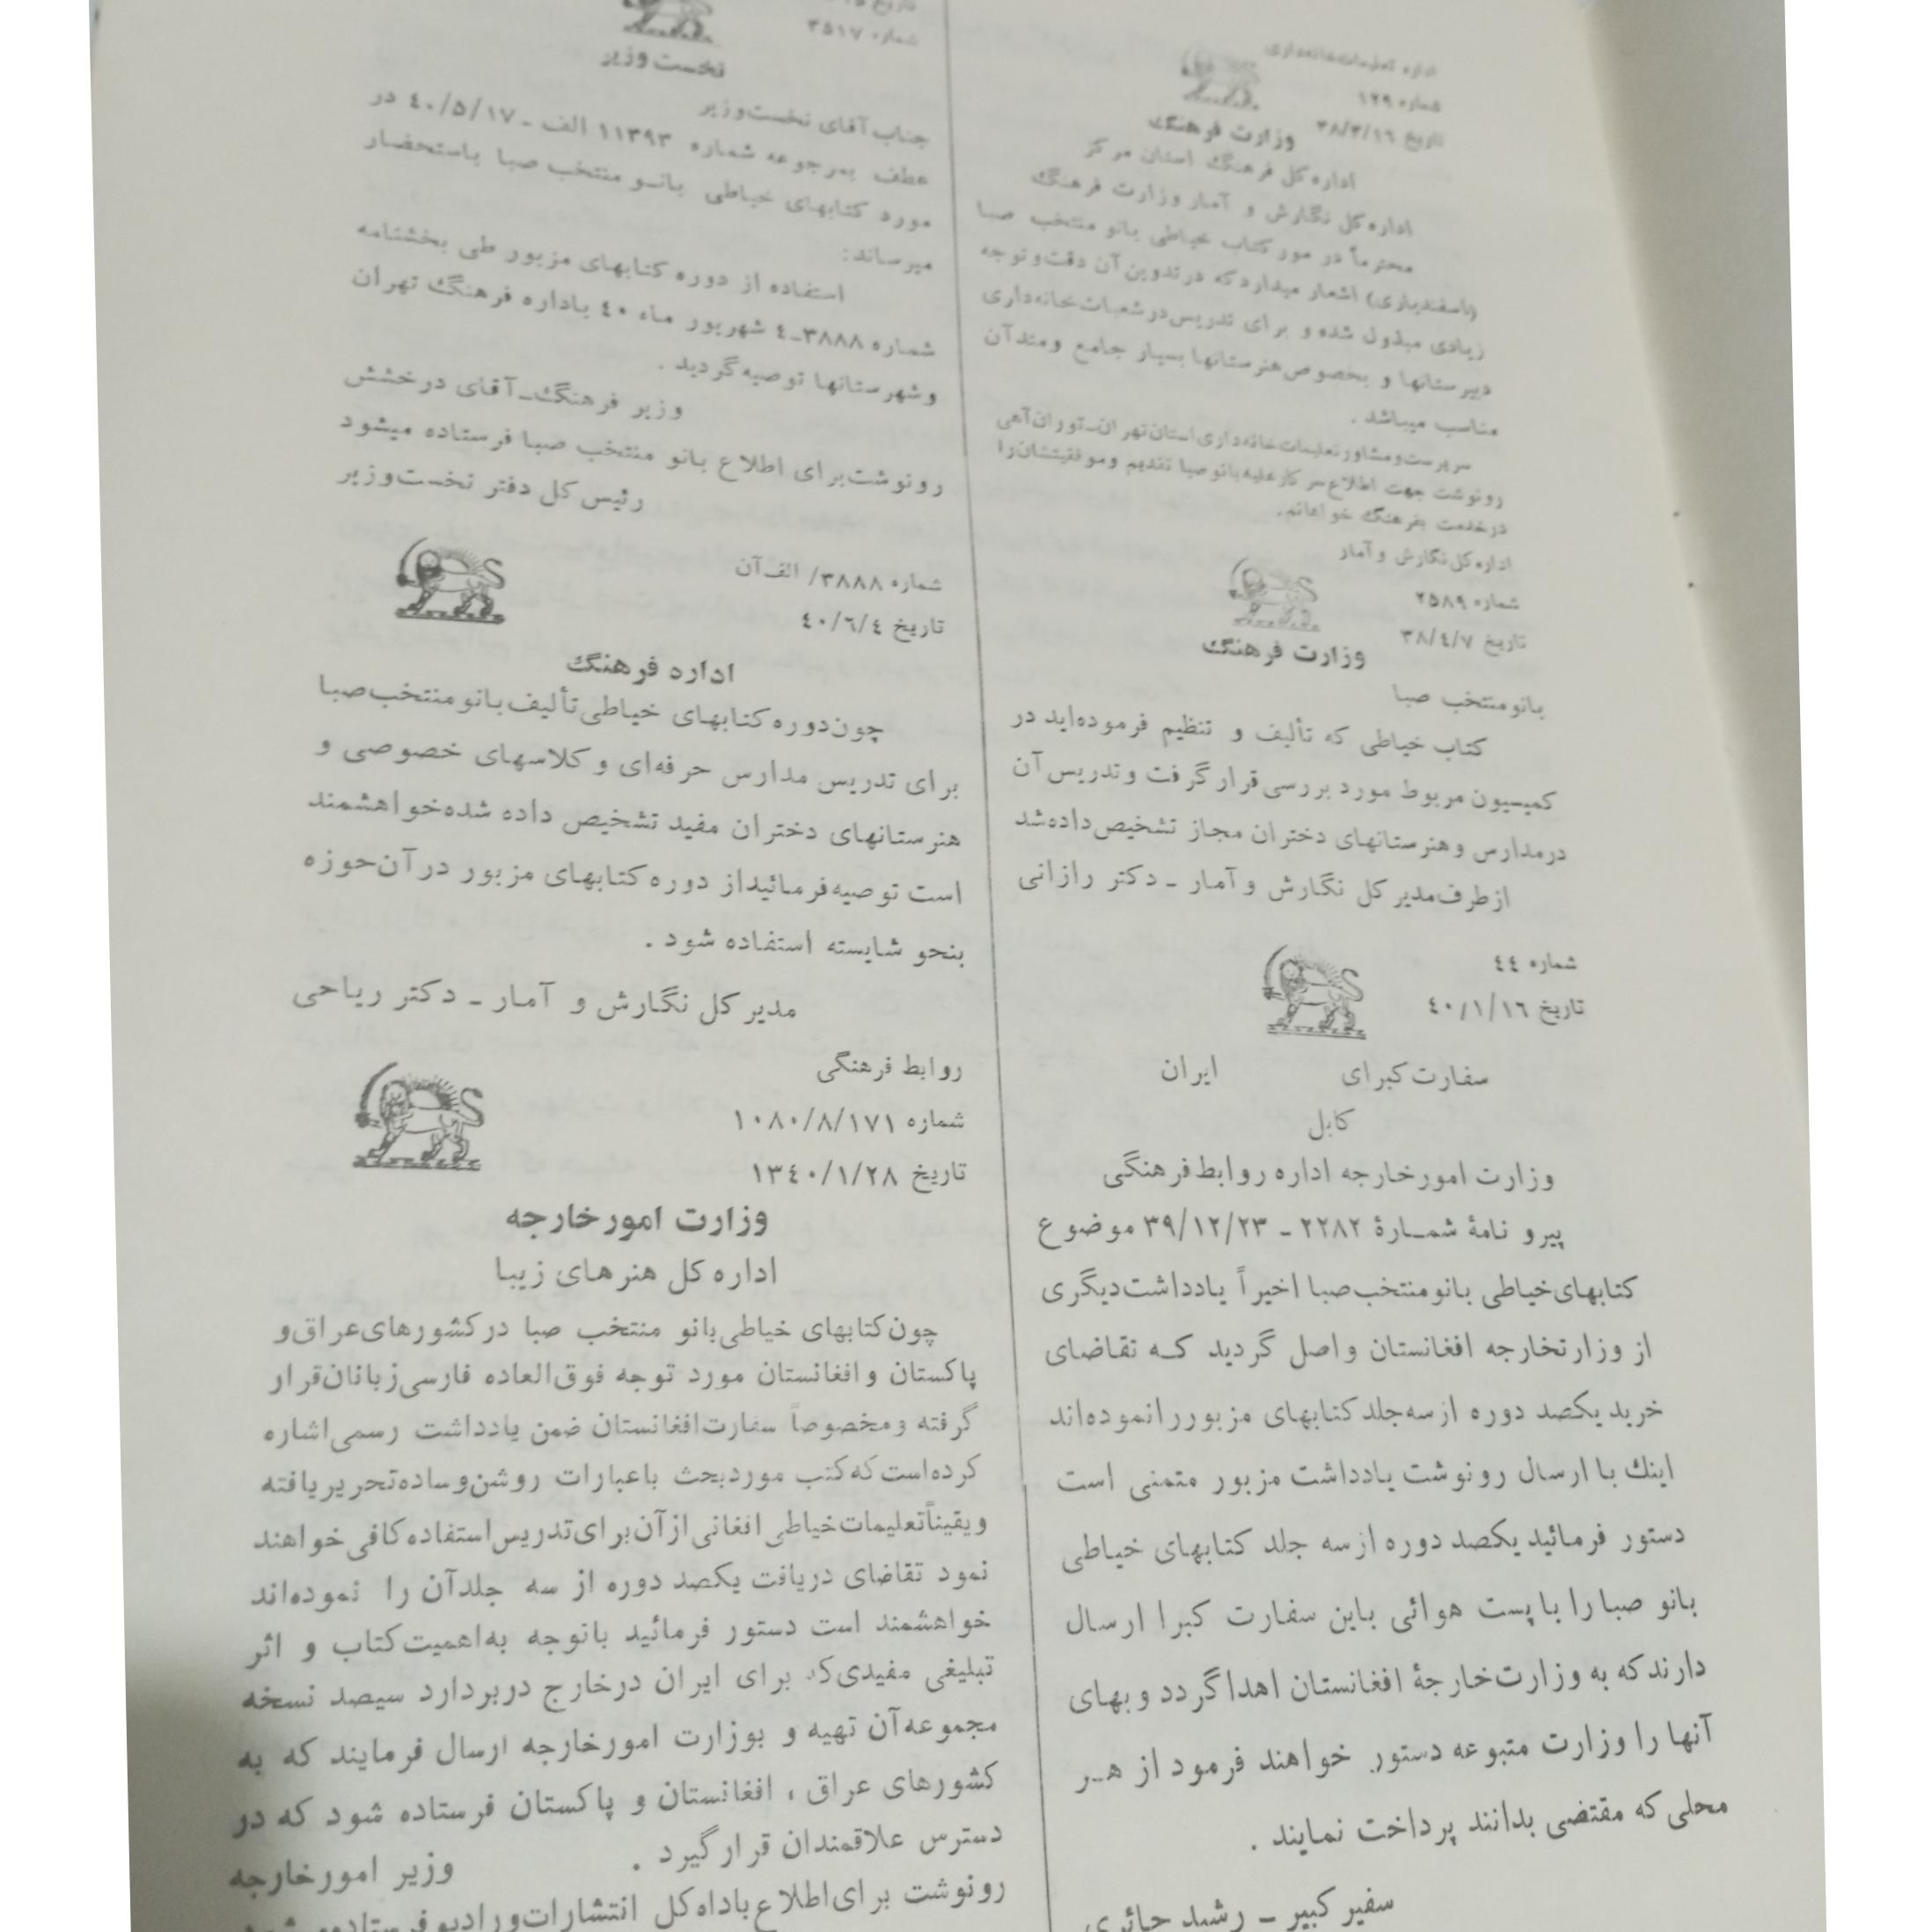 اداره تعلیمات خانه‌داری
شماره ۱۲۹
تاریخ ۳۸/۳/۱۶
وزارت فرهنگ
اداره کل فرهنگ استان مرکز
اداره کل نگارش و آمار وزارت فرهنگ
محترماً در مور کتاب خیاطی بانو منتخب صبا
(اسفندیاری) اشعار میدارد که در تدوین آن دقت و توجه
زیادی مبذول شده و برای تدریس در شعبات خانه‌داری
دبیرستانها و بخصوص هنرستانها بسیار جامع و متد آن
مناسب میباشد .
سرپرست و مشاور تعلیمات خانه‌داری استان تهران ـ توران آهی
رونوشت جهت اطلاع سرکار علیه بانو صبا تقدیم و موفقیتشان را
در خدمت بفرهنگ خواهانم.
اداره کل نگارش و آمار
شماره ۲۵۸۹
تاریخ ۳۸/٤/۷
وزارت فرهنگ
بانو منتخب صبا
کتاب خیاطی که تألیف و تنظیم فرموده‌اید در
کمیسیون مربوط مورد بررسی قرار گرفت و تدریس آن
در مدارس و هنرستانهای دختران مجاز تشخیص داده شد
از طرف مدیر کل نگارش و آمار ـ دکتر رازانی
شماره ٤٤
تاریخ ٤۰/۱/۱٦
سفارت کبرای ایران
کابل
وزارت امور خارجه اداره روابط فرهنگی
پیرو نامهٔ شمـارهٔ ۲۲۸۲ ـ ۳۹/۱۲/۲۳ موضوع
کتابهای خیاطی بانو منتخب صبا اخیراً یادداشت دیگری
از وزارتخارجه افغانستان واصل گردید کـه تقاضای
خرید یکصد دوره از سه جلد کتابهای مزبور را نموده‌اند
اینك با ارسال رونوشت یادداشت مزبور متمنی است
دستور فرمائید یکصد دوره از سه جلد کتابهای خیاطی
بانو صبا را با پست هوائی باین سفارت کبرا ارسال
دارند که به وزارت خارجهٔ افغانستان اهدا گردد و بهای
آنها را وزارت متبوعه دستور خواهند فرمود از هـر
محلی که مقتضی بدانند پرداخت نمایند .
سفیر کبیر ـ رشید حائری
شماره ۳۵۱۷
نخست وزیر
جناب آقای نخست وزیر
عطف بمرجوعه شماره ۱۱۳۹۳ الف ـ ٤۰/۵/۱۷ در
مورد کتابهای خیاطی بانـو منتخب صبا باستحضار
میرساند:
استفاده از دوره کتابهای مزبور طی بخشنامه
شماره ۳۸۸۸ـ٤ شهریور ماه ٤۰ باداره فرهنگ تهران
و شهرستانها توصیه گردید .
وزیر فرهنگ ـ آقای درخشش
رونوشت برای اطلاع بانو منتخب صبا فرستاده میشود
رئیس کل دفتر نخست وزیر
شماره ۳۸۸۸/ الف آن
تاریخ ٤۰/٦/٤
اداره فرهنگ
چون دوره کتابهای خیاطی تألیف بانو منتخب صبا
برای تدریس مدارس حرفه‌ای و کلاسهای خصوصی و
هنرستانهای دختران مفید تشخیص داده شده خواهشمند
است توصیه فرمائید از دوره کتابهای مزبور در آن حوزه
بنحو شایسته استفاده شود .
مدیر کل نگارش و آمار ـ دکتر ریاحی
روابط فرهنگی
شماره ۱۰۸۰/۸/۱۷۱
تاریخ ۱۳٤۰/۱/۲۸
وزارت امور خارجه
اداره کل هنرهای زیبا
چون کتابهای خیاطی بانو منتخب صبا در کشورهای عراق و
پاکستان و افغانستان مورد توجه فوق‌العاده فارسی زبانان قرار
گرفته و مخصوصاً سفارت افغانستان ضمن یادداشت رسمی اشاره
کرده است که کتب مورد بحث با عبارات روشن و ساده تحریر یافته
و یقیناً تعلیمات خیاطی افغانی از آن برای تدریس استفاده کافی خواهند
نمود تقاضای دریافت یکصد دوره از سه جلد آن را نموده‌اند
خواهشمند است دستور فرمائید باتوجه به اهمیت کتاب و اثر
تبلیغی مفیدی که برای ایران در خارج در بردارد سیصد نسخه
مجموعه آن تهیه و بوزارت امور خارجه ارسال فرمایند که به
کشورهای عراق ، افغانستان و پاکستان فرستاده شود که در
دسترس علاقمندان قرار گیرد .
وزیر امور خارجه
رونوشت برای اطلاع باداه کل انتشارات و رادیو فرستاده